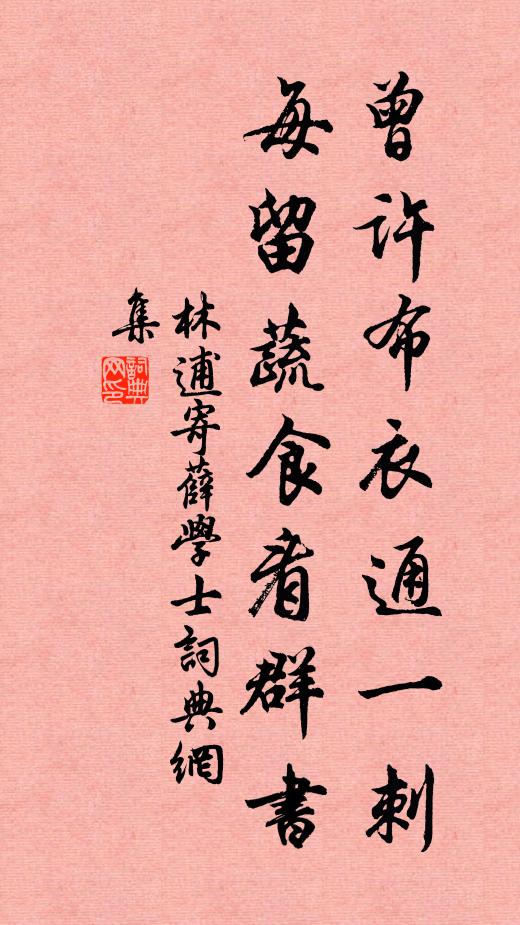 曾許布衣通一刺
每留蔬食看群書
林逋寄薛學士詞典網
集
詞典
网印